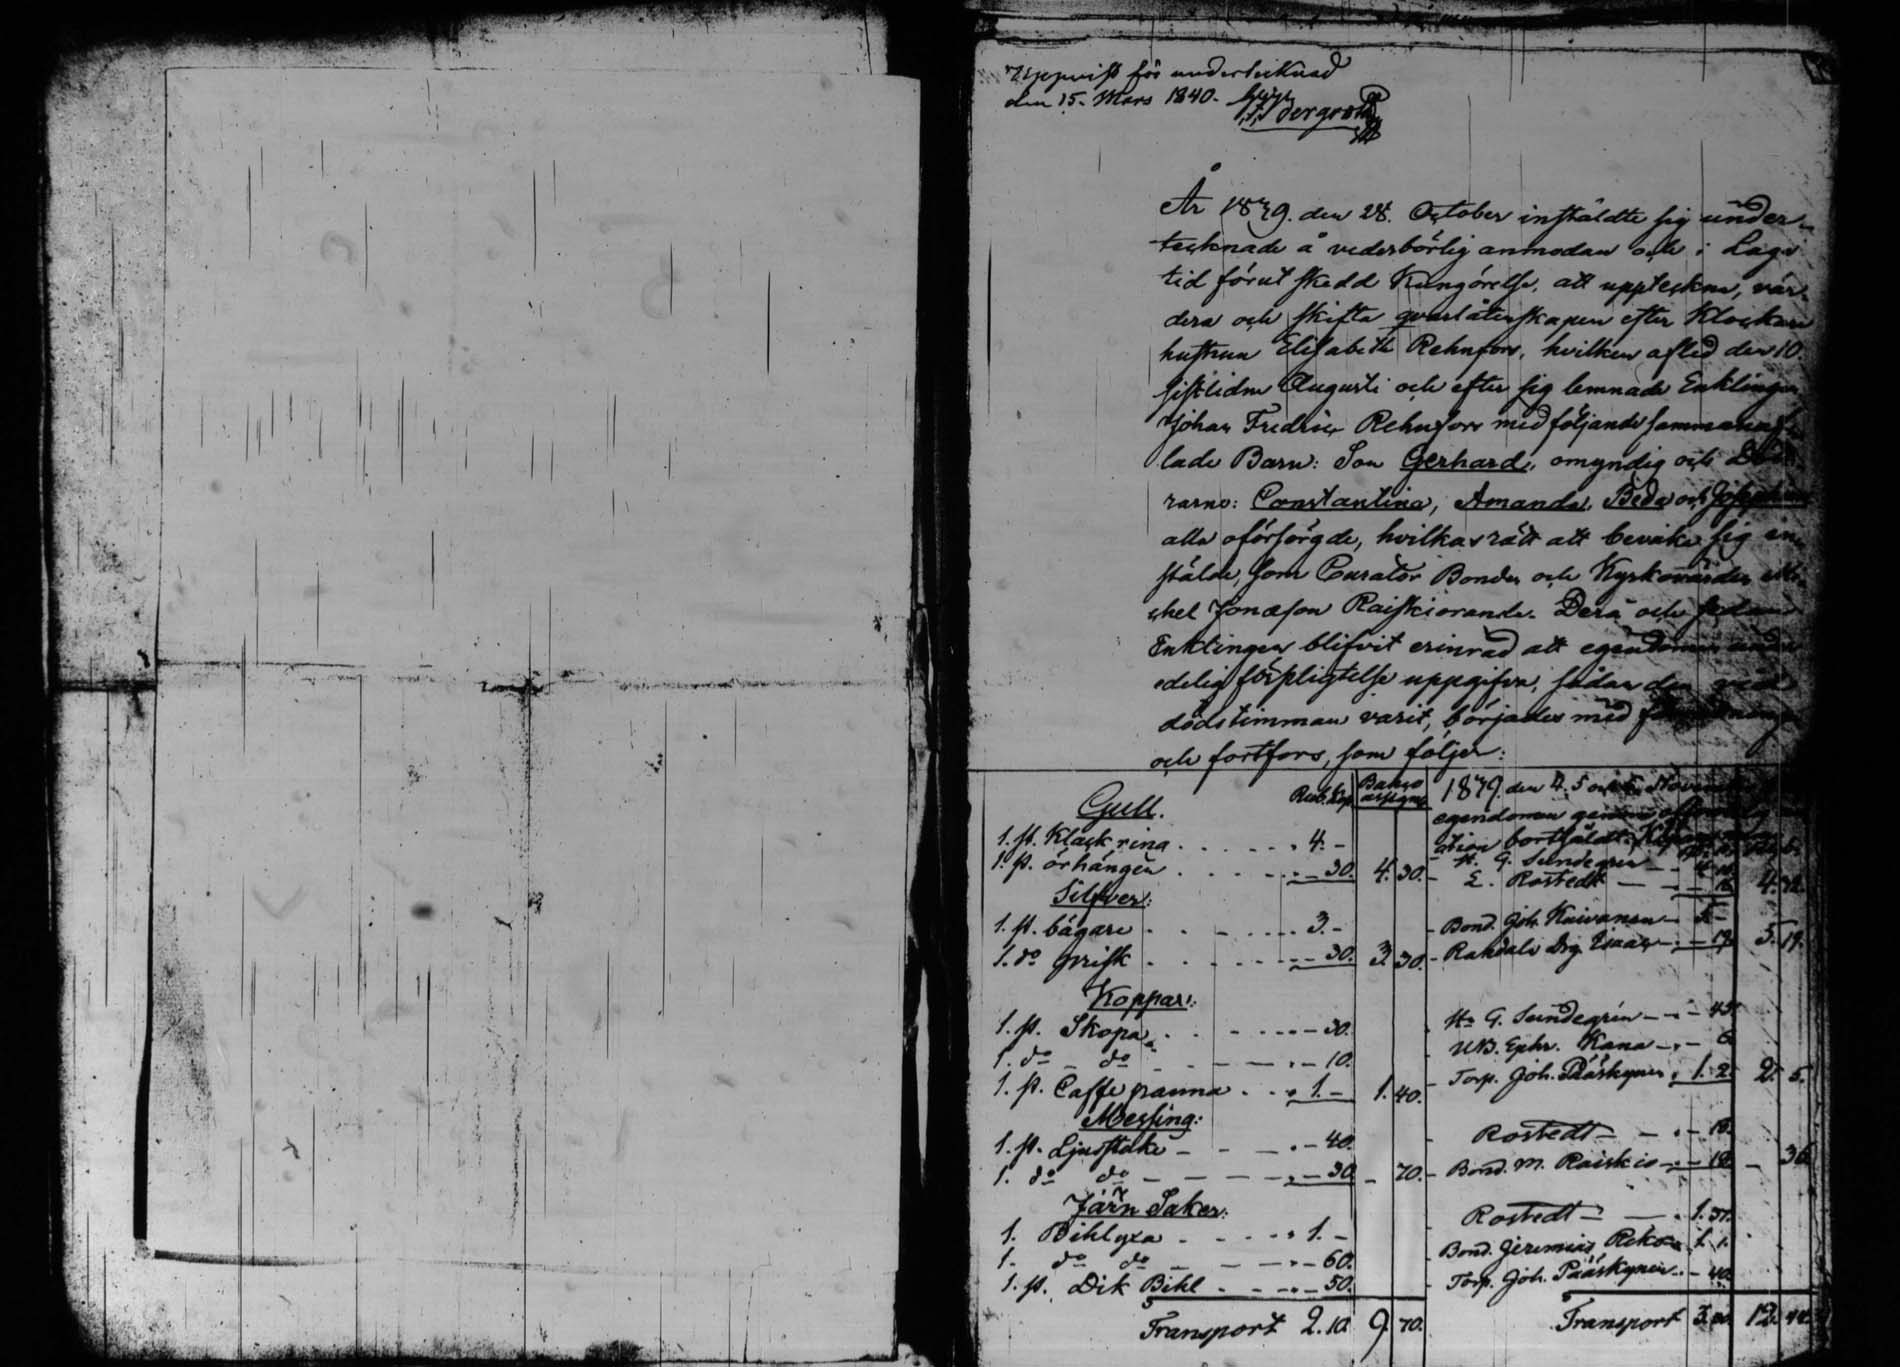 Uppvist för undertecknad
den 15. Mars 1840.
År 1839. den 28. October instäldte sig under-
tecknade å vederbörlig anmodan och i Laga
tid förut skedd Kungörelse, att uppteckna, vär-
dera och skifta qvarlåtenskapen efter Klockare
hustrun Elisabeth Rehnfors, hvilken afled den 10
sistlidne Augusti och efter sig lemnade Enklingen
Johan Fredric Rehnfors med följande sammanaf-
lade Barn: Son Gerhard, omyndig och
rarne: Constantina, Amanda, Beda och Josephina
alla oförsörgde, hvilkas rätt att bevaka sig in-
stälde, som Curator Bonden och Kyrkovärden Mi-
chel Jonæson Raiskioranda. Derå och sedan
Enklingen blifvit erinrad att egendomen under
edelig förpligtelse uppgifva, sådan den vid
dödstimman varit, börjades med
och fortfors, som följer:
Gull. Rub. Kop Banco assigne
1. st. Klack ring 4. -
1. st. örhängen - 30. 4. 30.
Silfver:
1. st. bägare 3. -
1. do prisk - 30. 3. 30.
Koppar:
1. st. Skopa - 30.
1. do do - 10.
1. st. Caffe panna 1. - 1. 40.
Messing:
1. st. Ljusstake - 40.
1. do do - 30 - 70.
Järn Saker:
1. Bihlyxa 1. -
1. do do - 60.
1. st. Dik Bihl - 50.
Transport 2. 10 9. 70.
1839. den 4. 5 och 6. November
egendomen genom
bortsåldt.
H. G. Sundegren
E. Rostedt 4. 32
Bond. Joh. Kaivanen 5. -
Drg. Isaac - 19 5. 19.
Hr G. Sundegrén - 45.
NB. Ephr. Kana - 6
Torp. Joh. Pääskynen 1. 2 2. 5.
Rostedt - 18.
Bond. M. Raiskio - 18 - 36
Rostedt 1. 31.
Bond. Jeremias 1. 1.
Torp. Joh. Pääskynen - 40.
Transport 12. 44